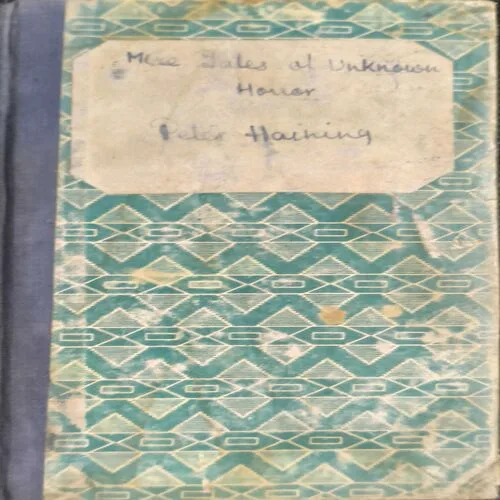 More Tales of Unknown
Horror
Peter Haining